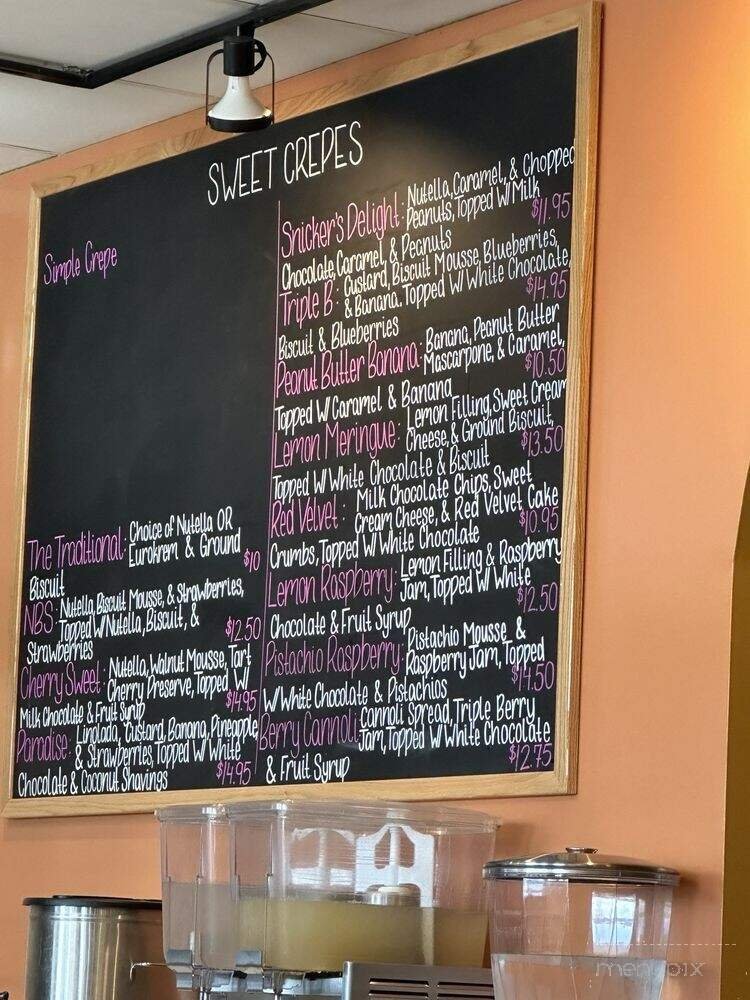 SWEET CREPES
Simple Crepe
The Traditional: Choice of Nutella OR
Eurokrem & Ground
$10
Biscuit
NBS: Nutella, Biscuit Mousse, & Strawberries,
Topped W/ Nutella, Biscuit, &
$12.50
Strawberries
Cherry Sweet: Nutella, Walnut Mousse, Tart
Cherry Preserve, Topped W/
$14.95
Milk Chocolate & Fruit Syrup
Paradise: Linolada, Custard, Banana, Pineapple,
& Strawberries, Topped W/ White
$14.95
Chocolate & Coconut Shavings
Snicker's Delight: Nutella, Caramel, & Chopped
Peanuts, Topped W/ Milk
$11.95
Chocolate, Caramel, & Peanuts
Triple B: Custard, Biscuit Mousse, Blueberries,
& Banana.. Topped W/ White Chocolate,
$14.95
Biscuit & Blueberries
Peanut Butter Banana: Banana, Peanut Butter
Mascarpone, & Caramel,
$10.50
Topped W/ Caramel & Banana
Lemon Meringue: Lemon Filling, Sweet Cream
Cheese, & Ground Biscuit,
$13.50
Topped W/ White Chocolate & Biscuit
Red Velvet: Milk Chocolate Chips, Sweet
Cream Cheese, & Red Velvet Cake
$10.95
Crumbs, Topped W/ White Chocolate
Lemon Raspberry: Lemon Filling & Raspberry
Jam, Topped W/ White
$12.50
Chocolate & Fruit Syrup
Pistachio Raspberry: Pistachio Mousse &
Raspberry Jam, Topped
$14.50
W/ White Chocolate & Pistachios
Berry Cannoli: Cannoli Spread, Triple Berry
Jam, Topped W/ White Chocolate
$12.75
& Fruit Syrup
menupix